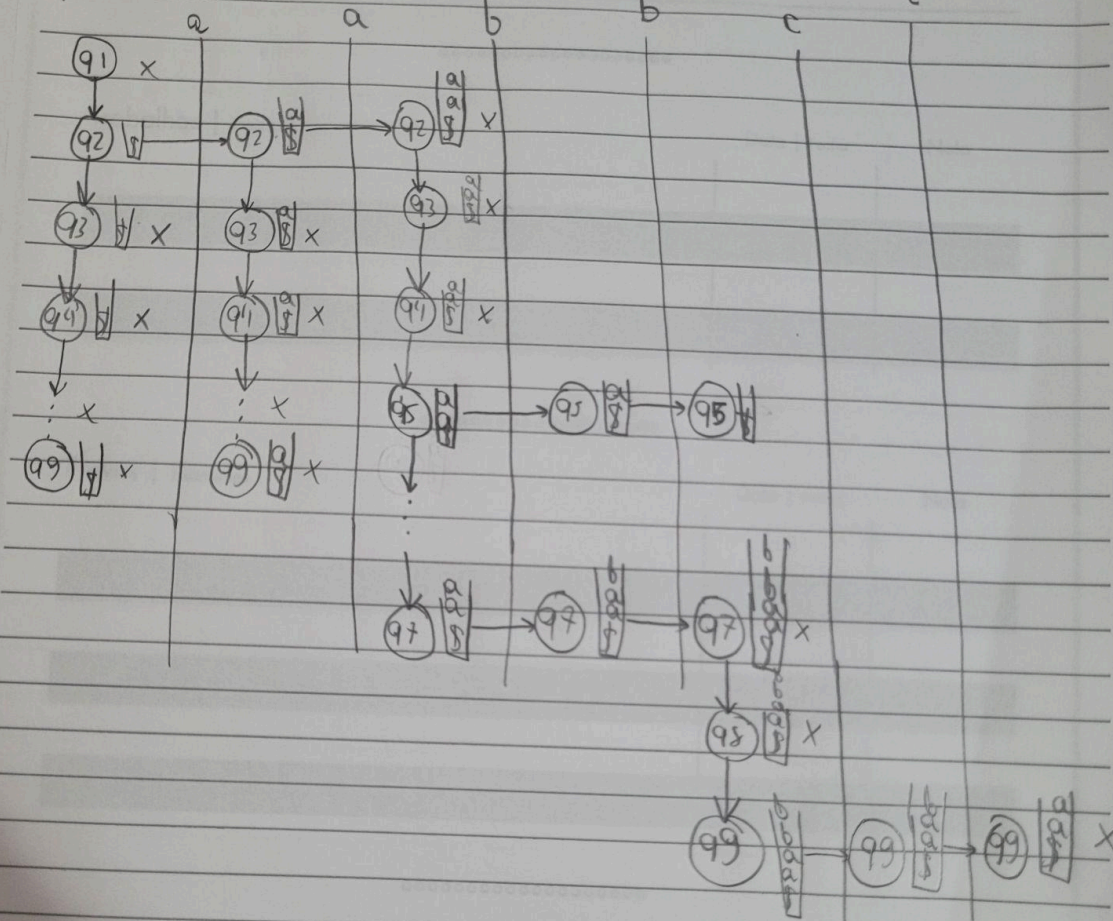 a a b b c c
q1 x
q2 $ q2 a $ q2 a a $ x
q3 $ x q3 a $ x q3 a a $ x
q4 $ x q4 a $ x q4 a a $ x
q5 a a $ q5 a $ q5 $
⋮ x ⋮ x
q9 $ x q9 a $ x
⋮
q7 a a $ q7 b a a $ q7 b b a a $ x
q8 b b a a $ x
q9 b b a a $ q9 b a a $ q9 a a $ x